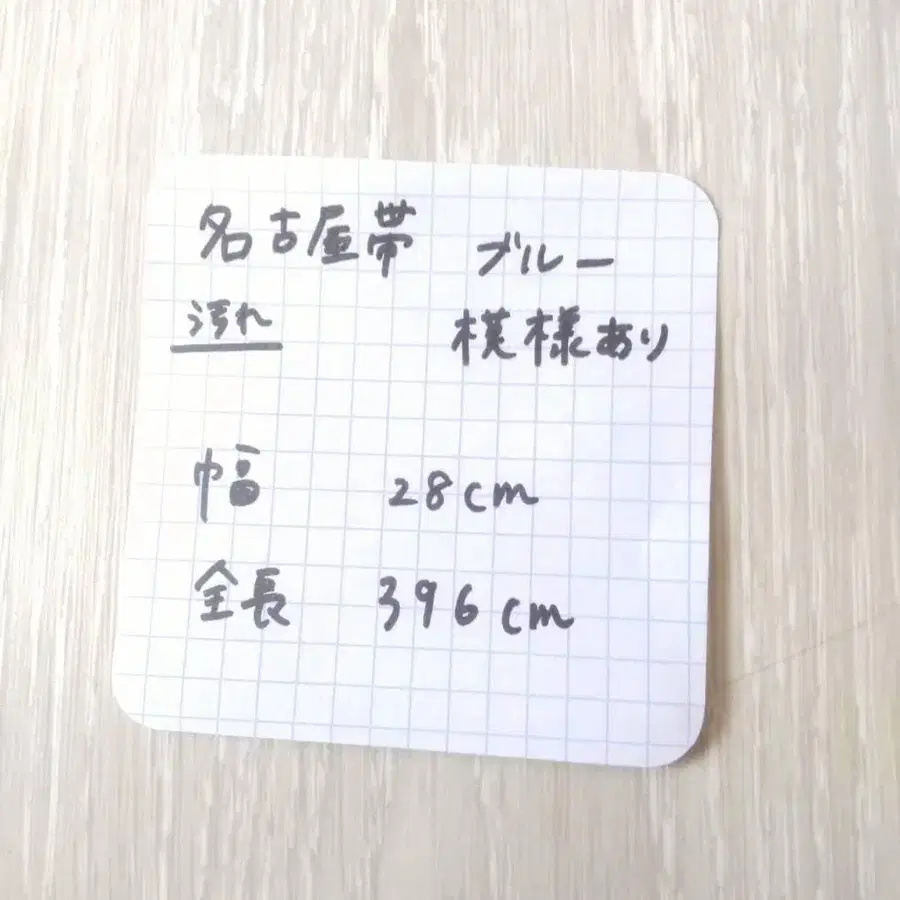 名古屋帯 ブルー
汚れ 模様あり
幅 28cm
全長 396cm